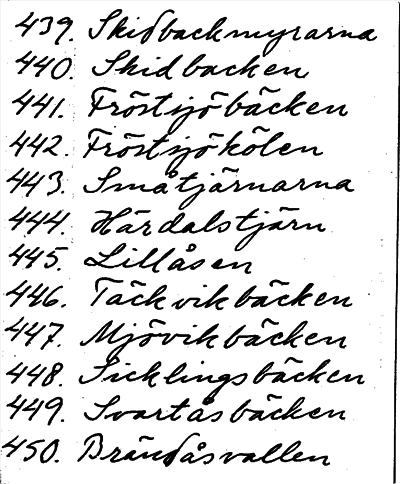 439. Skidbackmyrarna
440. Skidbacken
441. Fröstsjöbäcken
442. Fröstsjökölen
443. Småtjärnarna
444. Härdalstjärn
445. Lillåsen
446. Täckvikbäcken
447. Mjövikbäcken
448. Sicklingsbäcken
449. Svartåsbäcken
450. Brändåsvallen